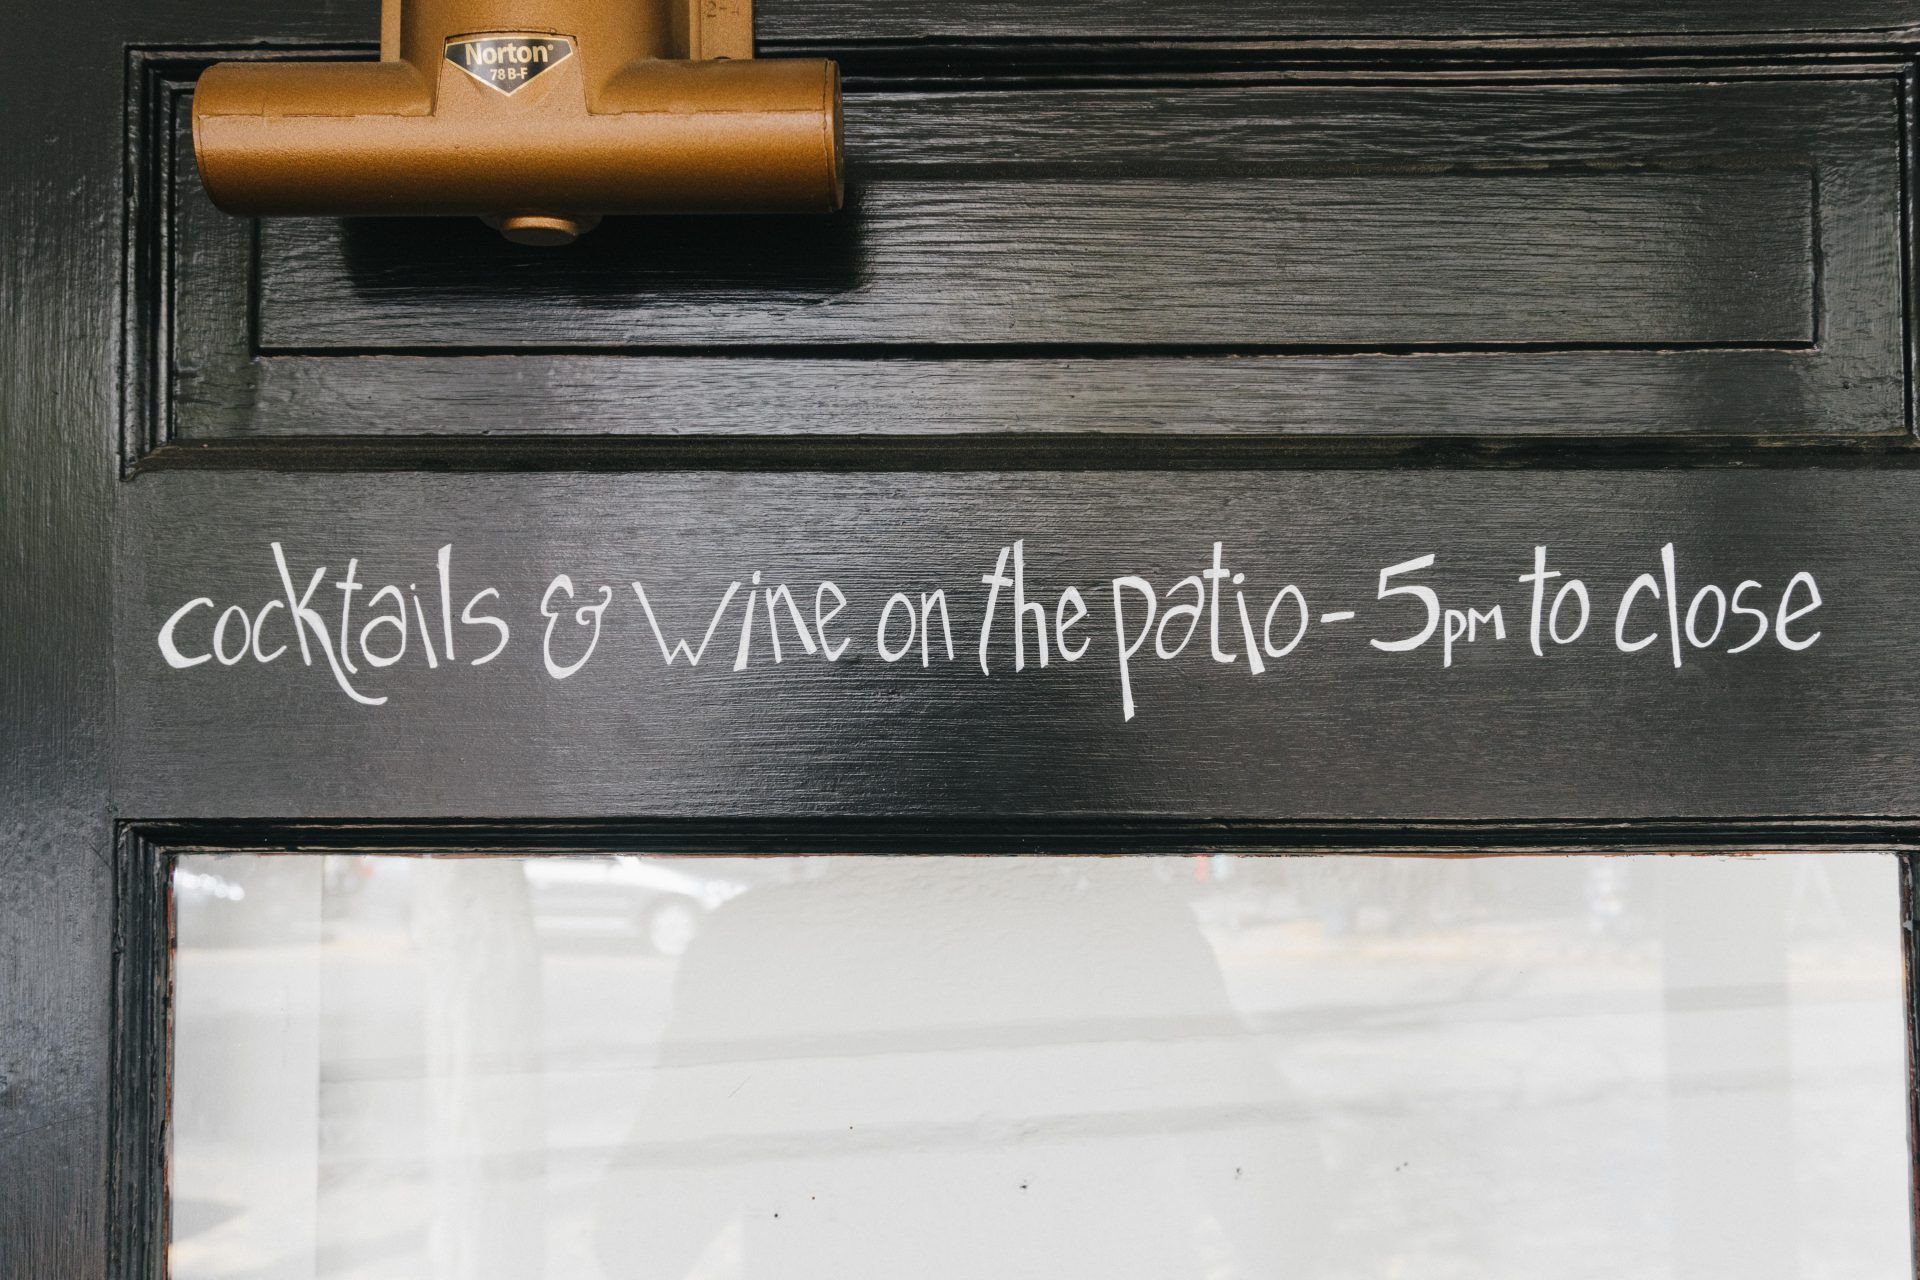 Norton®
78 B-F
cocktails & wine on the patio - 5pm to close